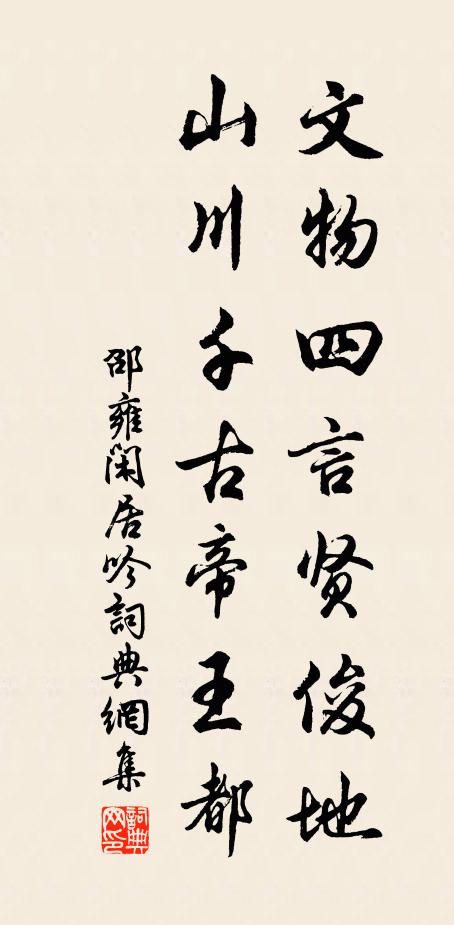 文物四言贤俊地
山川千古帝王都
邵雍闲居吟詞典網集
詞典网印